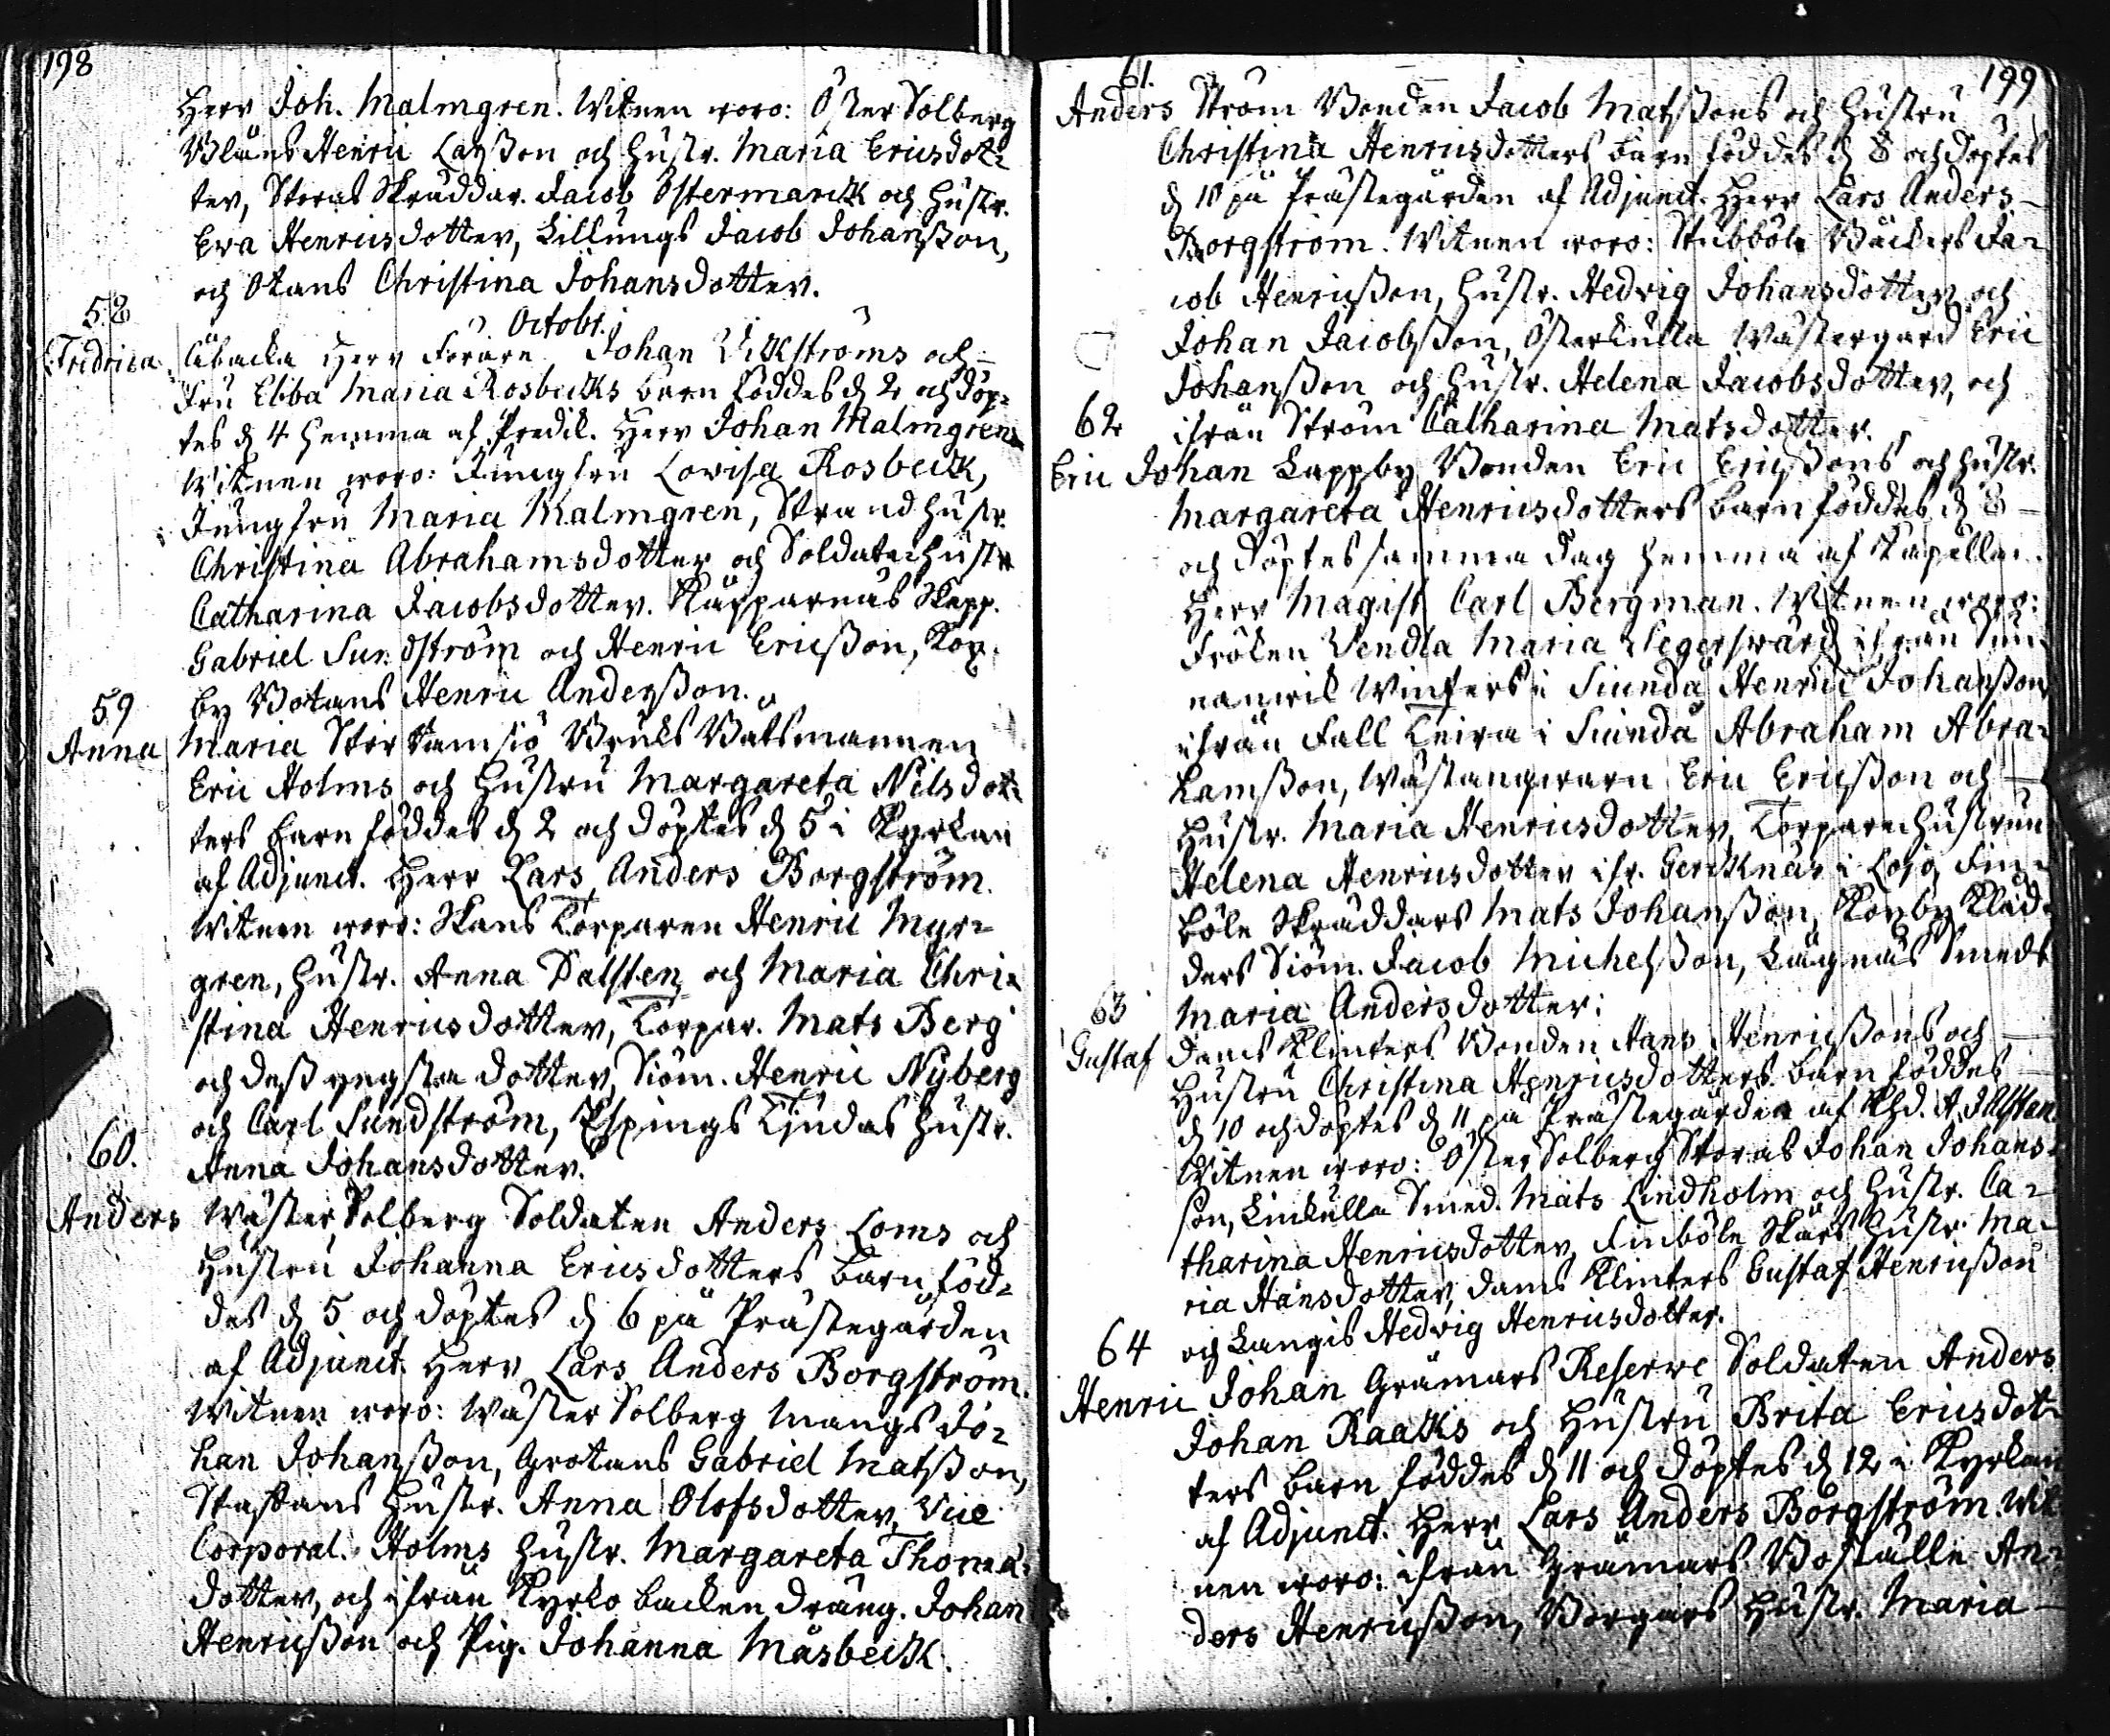 198
Herr Joh. Malmgren. Witnen woro: Öster Solberg
Blåns Henric Larsson och Hustr. Maria Ericsdot-
ter, Storas Skräddar. Jacob Östermarck och Hustr.
Eva Henricsdotter, Lillüngs Jacob Johansson,
och Otans Christina Johansdotter.
58
Octobr.
Fredrica Åbacka Herr Förare Johan Vikströms och
Fru Ebba Maria Rosbecks barn föddes d 2 och döp-
tes d 4 hemma af Predik. Herr Johan Malmgren
Witnen woro: Jungfru Lovisa Rosbeck,
Jungfru Maria Malmgren, Strand hustr
Christina Abrahamsdotter och Soldatehustr
Catharina Jacobsdotter. Skärparnäs Skepp.
Gabriel Sundström och Henric Ericsson, Kop-
by Botans Henric Andersson.
59
Anna Maria Stor Ramsiö Bruks Båtsmannen
Eric Holms och Hustru Margareta Nilsdot-
ters barn föddes d 2 och döptes d 5 i Kyrkan
af Adjunct. Herr Lars Anders Borgström.
Witnen woro: Skans Torparen Henric Myr-
gren, hustr. Anna Dalsten och Maria Chri-
stina Henricsdotter, Torpar. Mats Berg
och dess yngsta dotter, Siöm. Henric Nyberg
och Carl Sundström, Espings Hustr.
60.
Anna Johansdotter.
Anders Wäster Solberg Soldaten Anders Loms och
Hustru Johanna Ericsdotters barn föd-
des d 5 och döptes d 6 på Prästegården
af Adjunct. Herr Lars Anders Borgström.
Witnen woro: Wäster Solberg Mangs Jo-
han Johansson, Grotans Gabriel Matsson,
Staffans Hustr. Anna Olofsdotter, Vice
Corporal. Holms hustr. Margareta Thomæ-
dotter, och ifrån Kyrko backen dräng. Johan
Henricsson och Pig. Johanna Måsbeck.
199
61.
Anders Ström Bonden Jacob Matssons och Hustru
Christina Henricsdotters barn föddes d 8 och döptes
d 10 på Prästegården af Adjunct. Herr Lars Anders
Borgström. Witnen woro: Stubböle Bäckers Ja-
cob Henricsson, Hustr. Hedvig Johansdotter och
Johan Jacobsson, Österkulla Wästergård Eric
Johansson och Hustr. Helena Jacobsdotter, och
62
ifrån Ström Catharina Matsdotter.
Eric Johan Lappby Bonden Eric Ericssons och hustr.
Margareta Henricsdotters barn föddes d 8
och döptes samma dag hemma af Kapellan.
Herr Magist Carl Bergman. Witnen woro:
Fröken Vendla Maria Segersvärd ifrån Sun-
nanwik Winters i Siundå Henric Johansson
ifrån Fall i Siundå Abraham Abra-
hamsson, Wästanqwarn Eric Ericsson och
Hustr. Maria Henricsdotter, Torparehustrun
Helena Henricsdotter ifr. Gerknäs i Lojo, Fin-
böle Skräddars Mats Johansson, Kopby Kläd-
ders Siöm. Jacob Michelsson, Lågnäs Smeds
63
Maria Andersdotter.
Gustaf Dams Klinkers Bonden Hans Henricssons och
Hustru Christina Henricsdotters barn föddes
d 10 och döptes d 11 på Prästegården af Khd. A. Dalsten
Witnen woro: Öster Solberg Storas Johan Johans-
son, Linkulla Smed. Mats Lindholm och Hustr. Ca-
tharina Henricsdotter, Finböle Skärs Hustr. Ma-
ria Hansdotter, Dams Klinkers Gustaf Henricsson
64
och Langis Hedvig Henricsdotter.
Henric Johan Gråmars Reserve Soldaten Anders
Johan Raaks och Hustru Brita Ericsdot-
ters barn föddes d 11 och döptes d 12 i Kyrkan
af Adjunct. Herr Lars Anders Borgström. Wit-
nen woro: ifrån Gråmars Boställe An-
ders Henricsson, Borgars Hustr. Maria